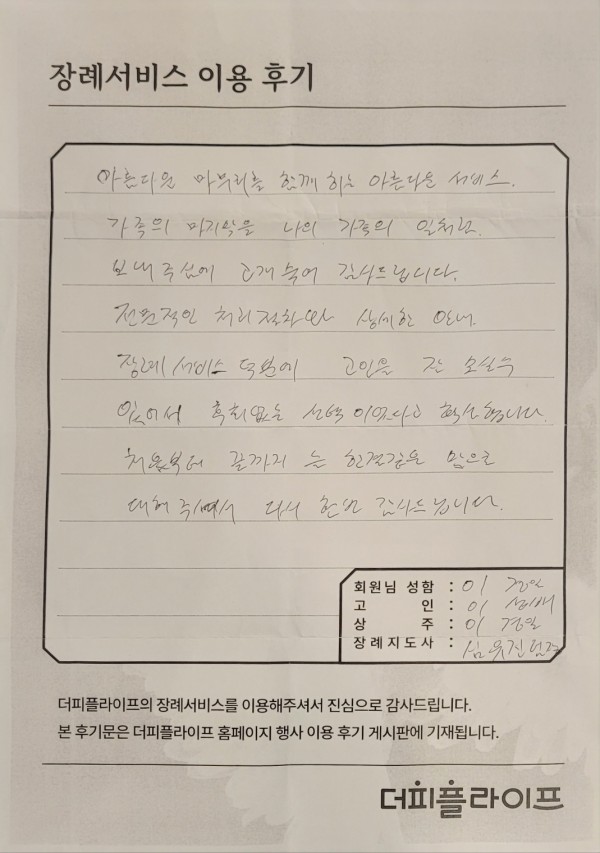 장례서비스 이용 후기
아름다운 마무리를 함께 하는 아름다운 서비스.
가족의 마지막을 나의 가족의 일처럼.
보내주심에 고개 숙여 감사드립니다.
전문적인 처리절차와 상세한 안내.
장례서비스 덕분에 고인을 잘 모실수
있어서 후회없는 선택이였다고 확신합니다.
처음부터 끝까지 늘 한결같은 맘으로
대해 주셔서 다시 한번 감사드립니다.
회원님 성함 : 이
고 인 : 이 성배
상 주 : 이
장례지도사 : 심
더피플라이프의 장례서비스를 이용해주셔서 진심으로 감사드립니다.
본 후기문은 더피플라이프 홈페이지 행사 이용 후기 게시판에 기재됩니다.
더피플라이프